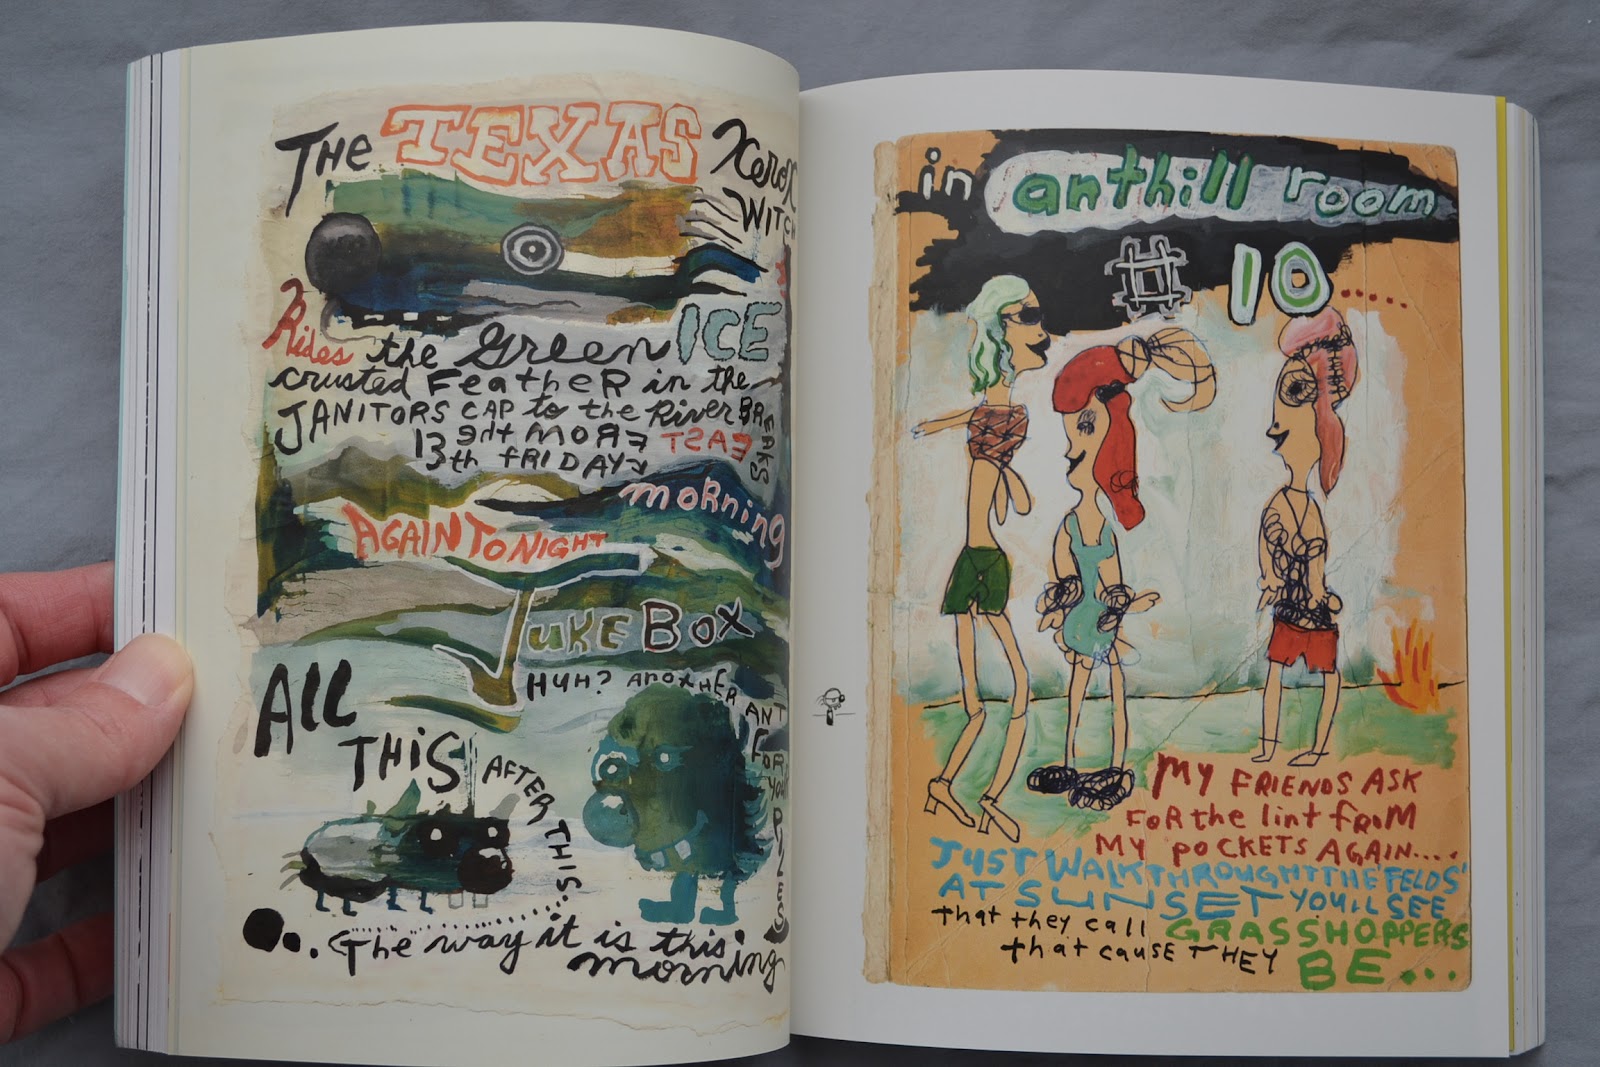 The TEXAS Xerox
WITCH
Rides the Green ICE
crusted FeatHeR in the
JANITORS CAP to the RiveR BREAKS
13 ƎHT MORƎ TSAƎ
13th FRIDAYz
morning
AGAIN TONIGHT
JUKE BOX
HUH? ANOTHER
ANT
FOR
YOUR
RULES
All
THiS AFTER THIS
. The way it is this
morning
in anthill room
# 10......
MY FRIENDS ASK
FOR the lint fROM
MY POCKETS AGAIN....
JUST WALK THROUGHT THE 'FELDS'
AT SUNSET YOU'LL SEE
that they call GRASSHOPPERS
that CAUSE THEY BE...